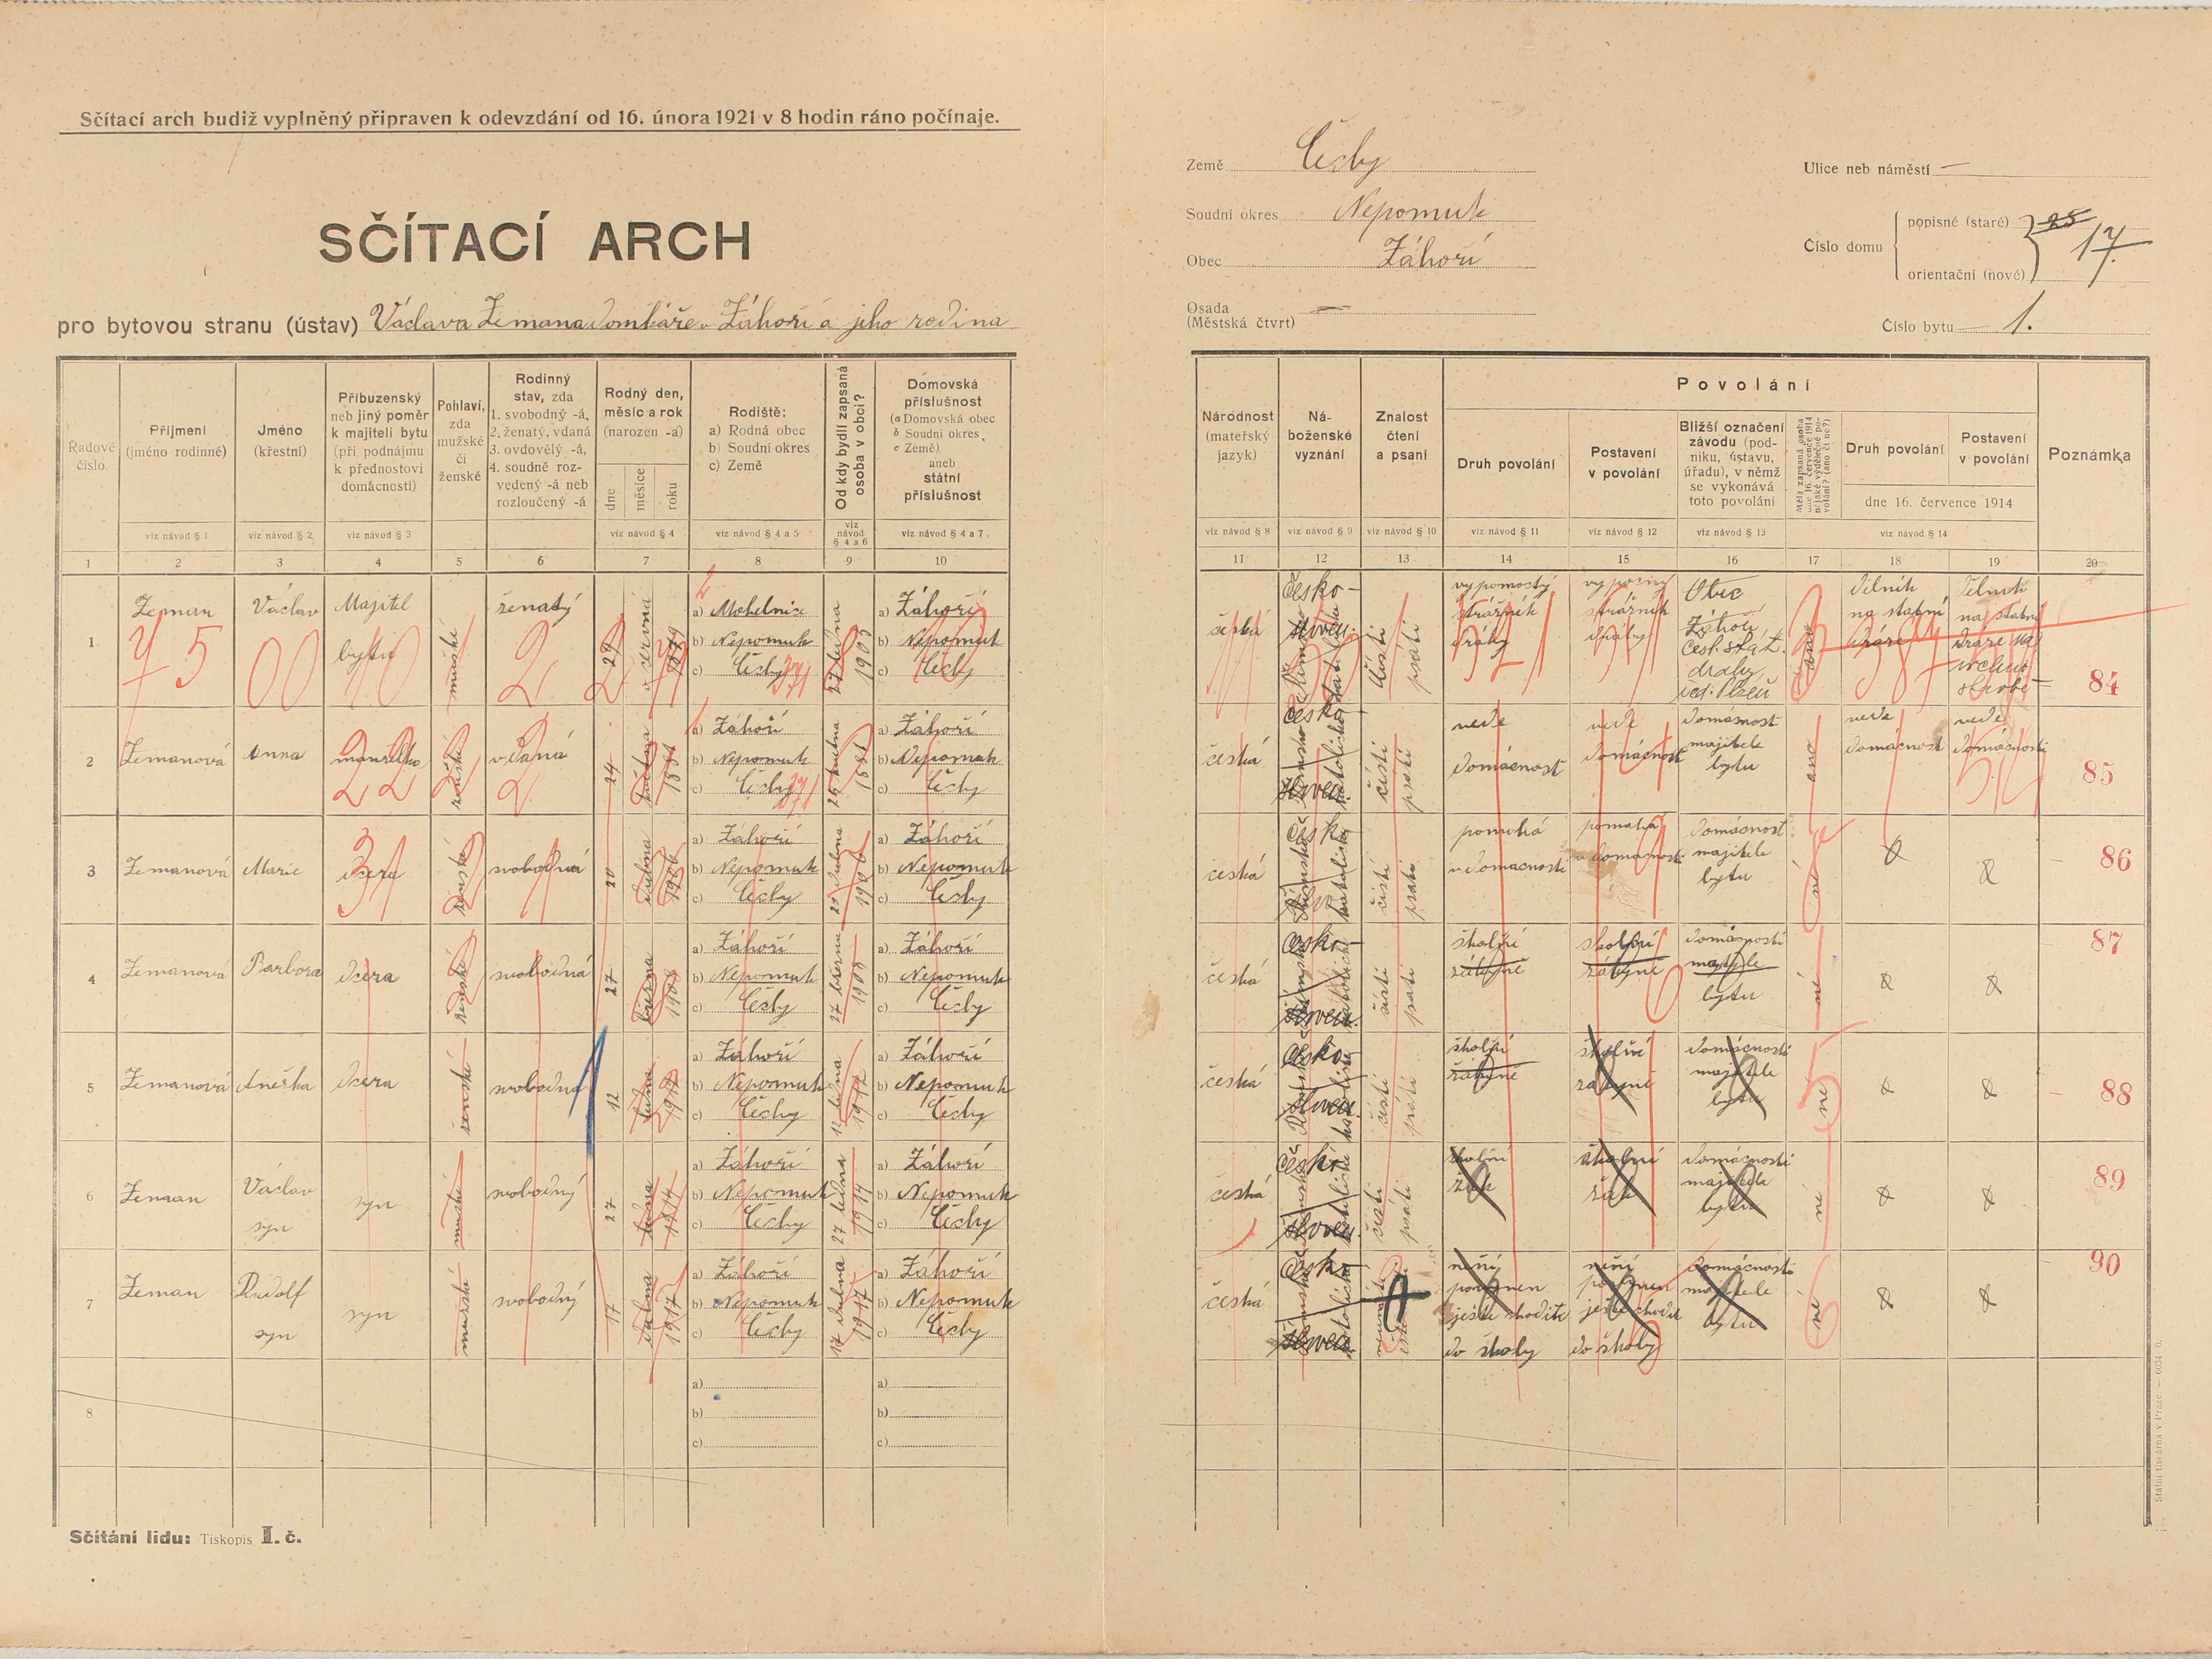 Sčítací arch budiž vyplněný připraven k odevzdání od 16. února 1921 v 8 hodin ráno počínaje.
SČÍTACÍ ARCH
pro bytovou stranu (ústav) Václava Zemana domkáře v Záhoří a jeho rodina
Země Čechy
Soudní okres Nepomuk
Obec Záhoří
Osada
(Městská čtvrt) —
Ulice neb náměstí —
Číslo domu
popisné (staré) 25
orientační (nové)
17
Číslo bytu 1.
Řadové číslo
Příjmení (jméno rodinné)
Jméno (křestní)
Příbuzenský neb jiný poměr k majiteli bytu (při podnájmu k přednostovi domácnosti)
Pohlaví, zda mužské či ženské
Rodinný stav, zda 1. svobodný -á, 2. ženatý, vdaná 3. ovdovělý -á, 4. soudně rozvedený -á neb rozloučený -á
Rodný den, měsíc a rok (narozen -a)
dne měsíce roku
Rodiště: a) Rodná obec b) Soudní okres c) Země
Od kdy bydlí zapsaná osoba v obci?
Domovská příslušnost (a Domovská obec b Soudní okres c Země) aneb státní příslušnost
viz návod § 1 viz návod § 2 viz návod § 3 viz návod § 4 viz návod § 4 a 5 viz návod § 4 a 6 viz návod § 4 a 7
1 2 3 4 5 6 7 8 9 10
Národnost (mateřský jazyk)
Náboženské vyznání
Znalost čtení a psaní
Povolání
Druh povolání
Postavení v povolání
Bližší označení závodu (podniku, ústavu, úřadu), v němž se vykonává toto povolání
Měla zapsaná osoba dne 16. července 1914 nějaké výdělečné povolání? (ano či ne?)
Druh povolání
Postavení v povolání
dne 16. července 1914
Poznámka
viz návod § 8 viz návod § 9 viz návod § 10 viz návod § 11 viz návod § 12 viz návod § 13 viz návod § 14
11 12 13 14 15 16 17 18 19 20
1 Zeman Václav Majitel bytu mužské ženatý 29 června 1879
a) Mohelnice
b) Nepomuk
c) Čechy
1903
a) Záhoří
b) Nepomuk
c) Čechy
česká česko- čísti psáti
strážník dráhy
strážník dráhy
Obec Záhoří
dráhy
ano
dělník na statní dráze
dělník
84
2 Zemanová Anna manželka ženské vdaná 24 května 1881
a) Záhoří
b) Nepomuk
c) Čechy
1881
a) Záhoří
b) Nepomuk
c) Čechy
česká česko čísti psáti
vede domácnost
vede domácnost
domácnost majitele bytu
ano
vede domácnost
vede domácnost
85
3 Zemanová Marie dcera ženské svobodná 20 dubna 1906
a) Záhoří
b) Nepomuk
c) Čechy
dubna 1906
a) Záhoří
b) Nepomuk
c) Čechy
česká česko- čísti psáti
pomahá v domacnosti
pomaha v domacnosti
domácnost majitele bytu
né
86
4 Zemanová Barbora dcera ženské svobodná 27 března 1908
a) Záhoří
b) Nepomuk
c) Čechy
27 března 1908
a) Záhoří
b) Nepomuk
c) Čechy
česká česko- čísti psati
školní žákyně
školní žákyně
domácnosti majitele bytu
né
87
5 Zemanová Anežka dcera ženské svobodná 12 ledna 1912
a) Záhoří
b) Nepomuk
c) Čechy
12 ledna 1912
a) Záhoří
b) Nepomuk
c) Čechy
česká česko- čísti psáti
školní žákyně
školní žákyně
domácnosti majitele bytu
né
88
6 Zeman Václav syn syn mužské svobodný 27 ledna 1914
a) Záhoří
b) Nepomuk
c) Čechy
27 ledna 1914
a) Záhoří
b) Nepomuk
c) Čechy
česká česko- čísti psáti
školní žák
školní žák
domácnosti majitele bytu
né
89
7 Zeman Rudolf syn syn mužské svobodný 17 dubna 1917
a) Záhoří
b) Nepomuk
c) Čechy
17 dubna 1917
a) Záhoří
b) Nepomuk
c) Čechy
česká česko-
není povinen ještě choditi do školy
není povinen ještě chodit do školy
domácnosti majitele bytu
né
90
8
a)
b)
c)
a)
b)
c)
Sčítání lidu: Tiskopis I. č.
Státní tiskárna v Praze. — 6634